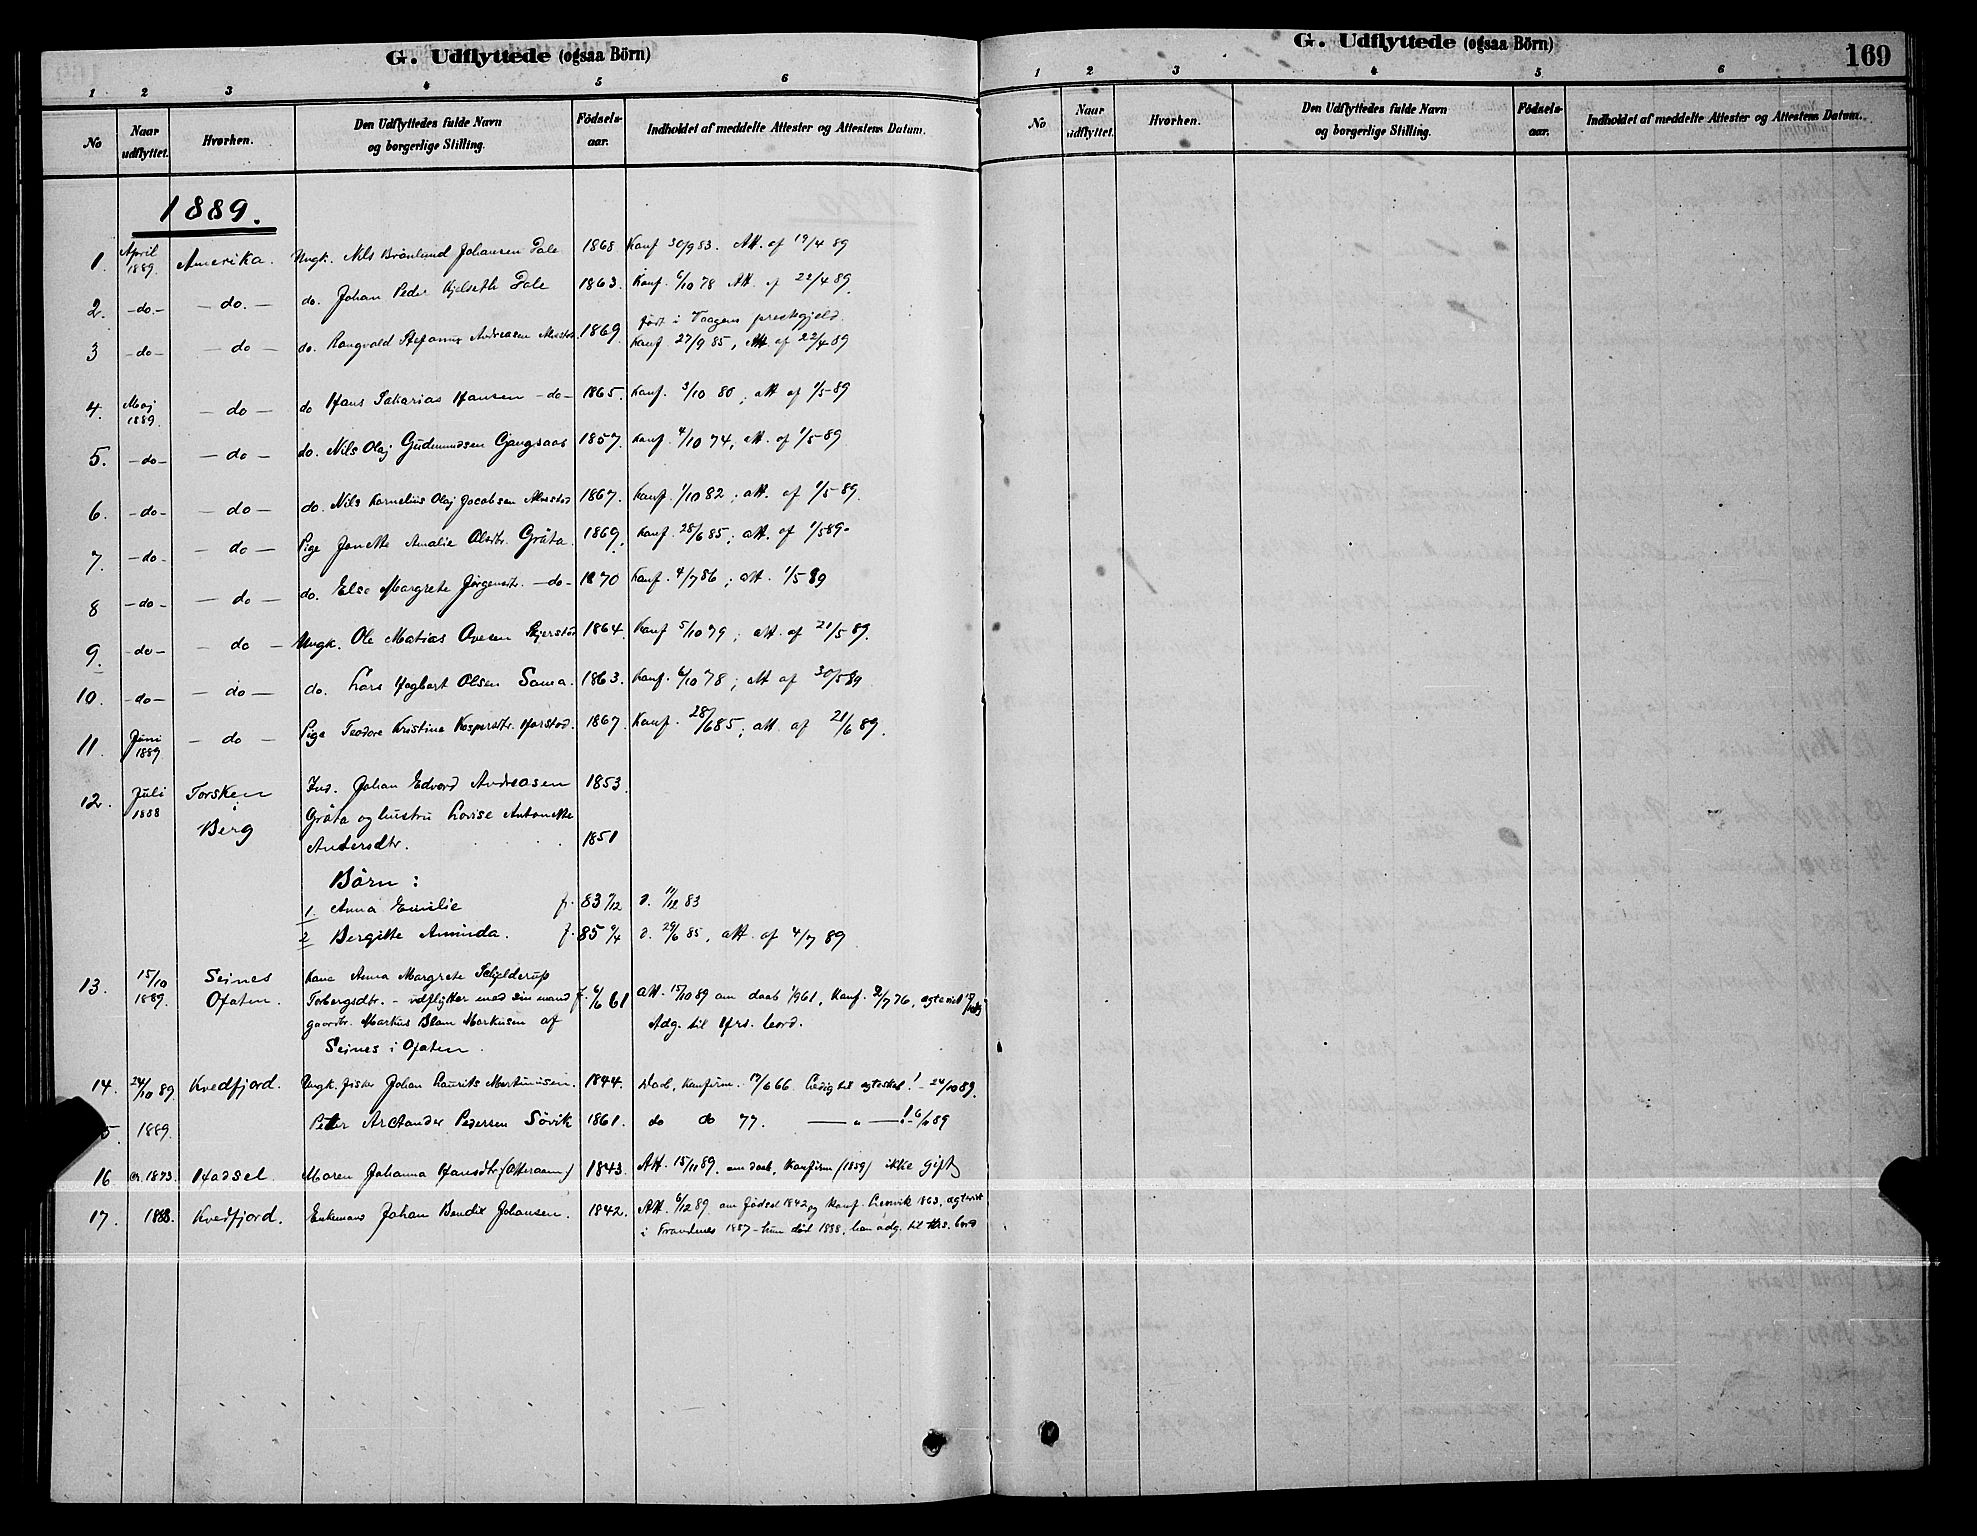 G. Udflyttede (ogsaa Börn)
1 2 3 4 5 6
No Naar udflyttet. Hvorhen. Den Udflyttedes fulde Navn og borgerlige Stilling. Födsels-aar. Indholdet af meddelte Attester og Attestens Datum.
1889.
1. April 1889. Amerika. Ungk. Nils Brönlund Johansen Dale 1868 Konf 30/9 83. Att. af 19/4 89
2. -do- - do. - do. Johan Peder Kjelseth Dale 1863. Konf. 6/10 78 Att. af 22/4 89.
født i Vaagens prestegjeld.
3 -do- - do - do. Rangvald Stefanus Andreasen 1869 Konf. 27/9 85, Att. af 22/4 89
4. Maj 1889. - do - do Hans Sakarias Hansen -do- 1865. Konf. 3/10 80; att. af 1/5-89
5. -do- - do - do. Nils Olaj Gudmundsen Gangsaas 1857. Konf. 4/10 74, att. af 1/5-89
6. -do- - do - do. Nils Kornelius Olaj Jacobsen 1867. Konf. 1/10 82; att. af 1/5-89.
7. -do- - do - Pige Janette Amalie Olsdtr. Gråta. 1869. Konf. 28/6 85; att. af 1/5 89-
8 -do- - do - do. Else Margrete Jørgensdtr. -do- 1870 Konf. 4/7 86; att. 1/5 89
9. -do- - do - Ungk. Ole Matias Ovesen 1864. Konf 5/10 79; att. af 21/5-89.
10. -do- - do - do. Lars Hagbart Olsen Sama. 1863. Konf. 6/10 78; att af 30/5 89
11. Juni 1889 - do - Pige Teodore Kristine Kaspersdtr. Harstad. 1867 Konf. 28/6 85; att. af 21/6 89.
12. Juli 1888 Torsken Ind. Johan Edvard Andreasen 1853
i Berg Gråta og hustru Lovise Antonette
Andersdtr. 1851
Børn:
1. Anna Emilie f. 83 d. 11/12 83
2 Bergitte Aminda. f. 85 d. 29/6 85, att. af 4/7 89
13. 15/10 1889. Seines Kone Anna Margrete Schjelderup
Ofoten. Torbergsdtr. - udflytter med sin mand f. 61 att. 15/10 89 om daab 61, Konf. 2/7 76, egteviet
gaardbr. Markus Blom Markusen af Adg. til Hrs. bord.
Seines i Ofoten.
14. 24/10 89. Kvedfjord. Ungk. fisker Johan Laurits Martinusen. 1844. Daab, Konfirm. 66. Ledig til egteskab! - 24/10 89.
5 1889. Peter Arctander Pedersen Sövik 1861. do do 77. — „ —! 89
16 ca. 1873. Hadsel. Maren Johanna Hansdtr (Otteraaen) 1843. Att. 15/11 89. om daab, Konfirm (1859) ikke gift
17. 1888. Kvedfjord. Enkemand Johan Bendix Johansen. 1842. Att. 6/12 89. om fødsel 1842 og Konf. Lenvik 1863, egteviet
i Trandenes 1887 - hun død 1888, han adg. til Hrs. bord
G. Udflyttede (ogsaa Börn) 169
1 2 3 4 5 6
No Naar udflyttet. Hvorhen. Den Udflyttedes fulde Navn og borgerlige Stilling. Födsels-aar. Indholdet af meddelte Attester og Attestens Datum.